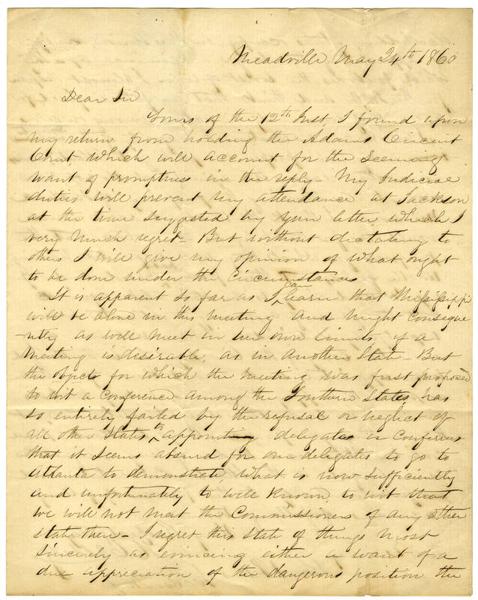 Meadville May 24th 1860
Dear Sir
Yours of the 12th Inst I found upon
my return from holding the Adams Circuit
Court which will account for the seeming
want of promptness in the reply. My Judicial
duties will prevent my attendance at Jackson
at the time suggested by your letter which I
very much regret. But without dictating to
others I will give my opinion of what ought
to be done under the circumstances
It is apparent so far as I can learn that Mississippi
will be alone in this meeting and might conseque
ntly as well meet in her own limits, if a
meeting is desirable, as in another State. But
the object for which the meeting was first proposed
to wit a Conference among the Southern States, has
so entirely failed by the refusal or neglect of
all other States to appointing delegates or Conferees
that it seems absurd for our delegates to go to
Atlanta to demonstrate what is now sufficiently
and unfortunately to well known to wit that
we will not meet the Commissioners of any other
state there. I regret this state of things most
sincerely as evincing either a want of a
due appreciation of the dangerous position the